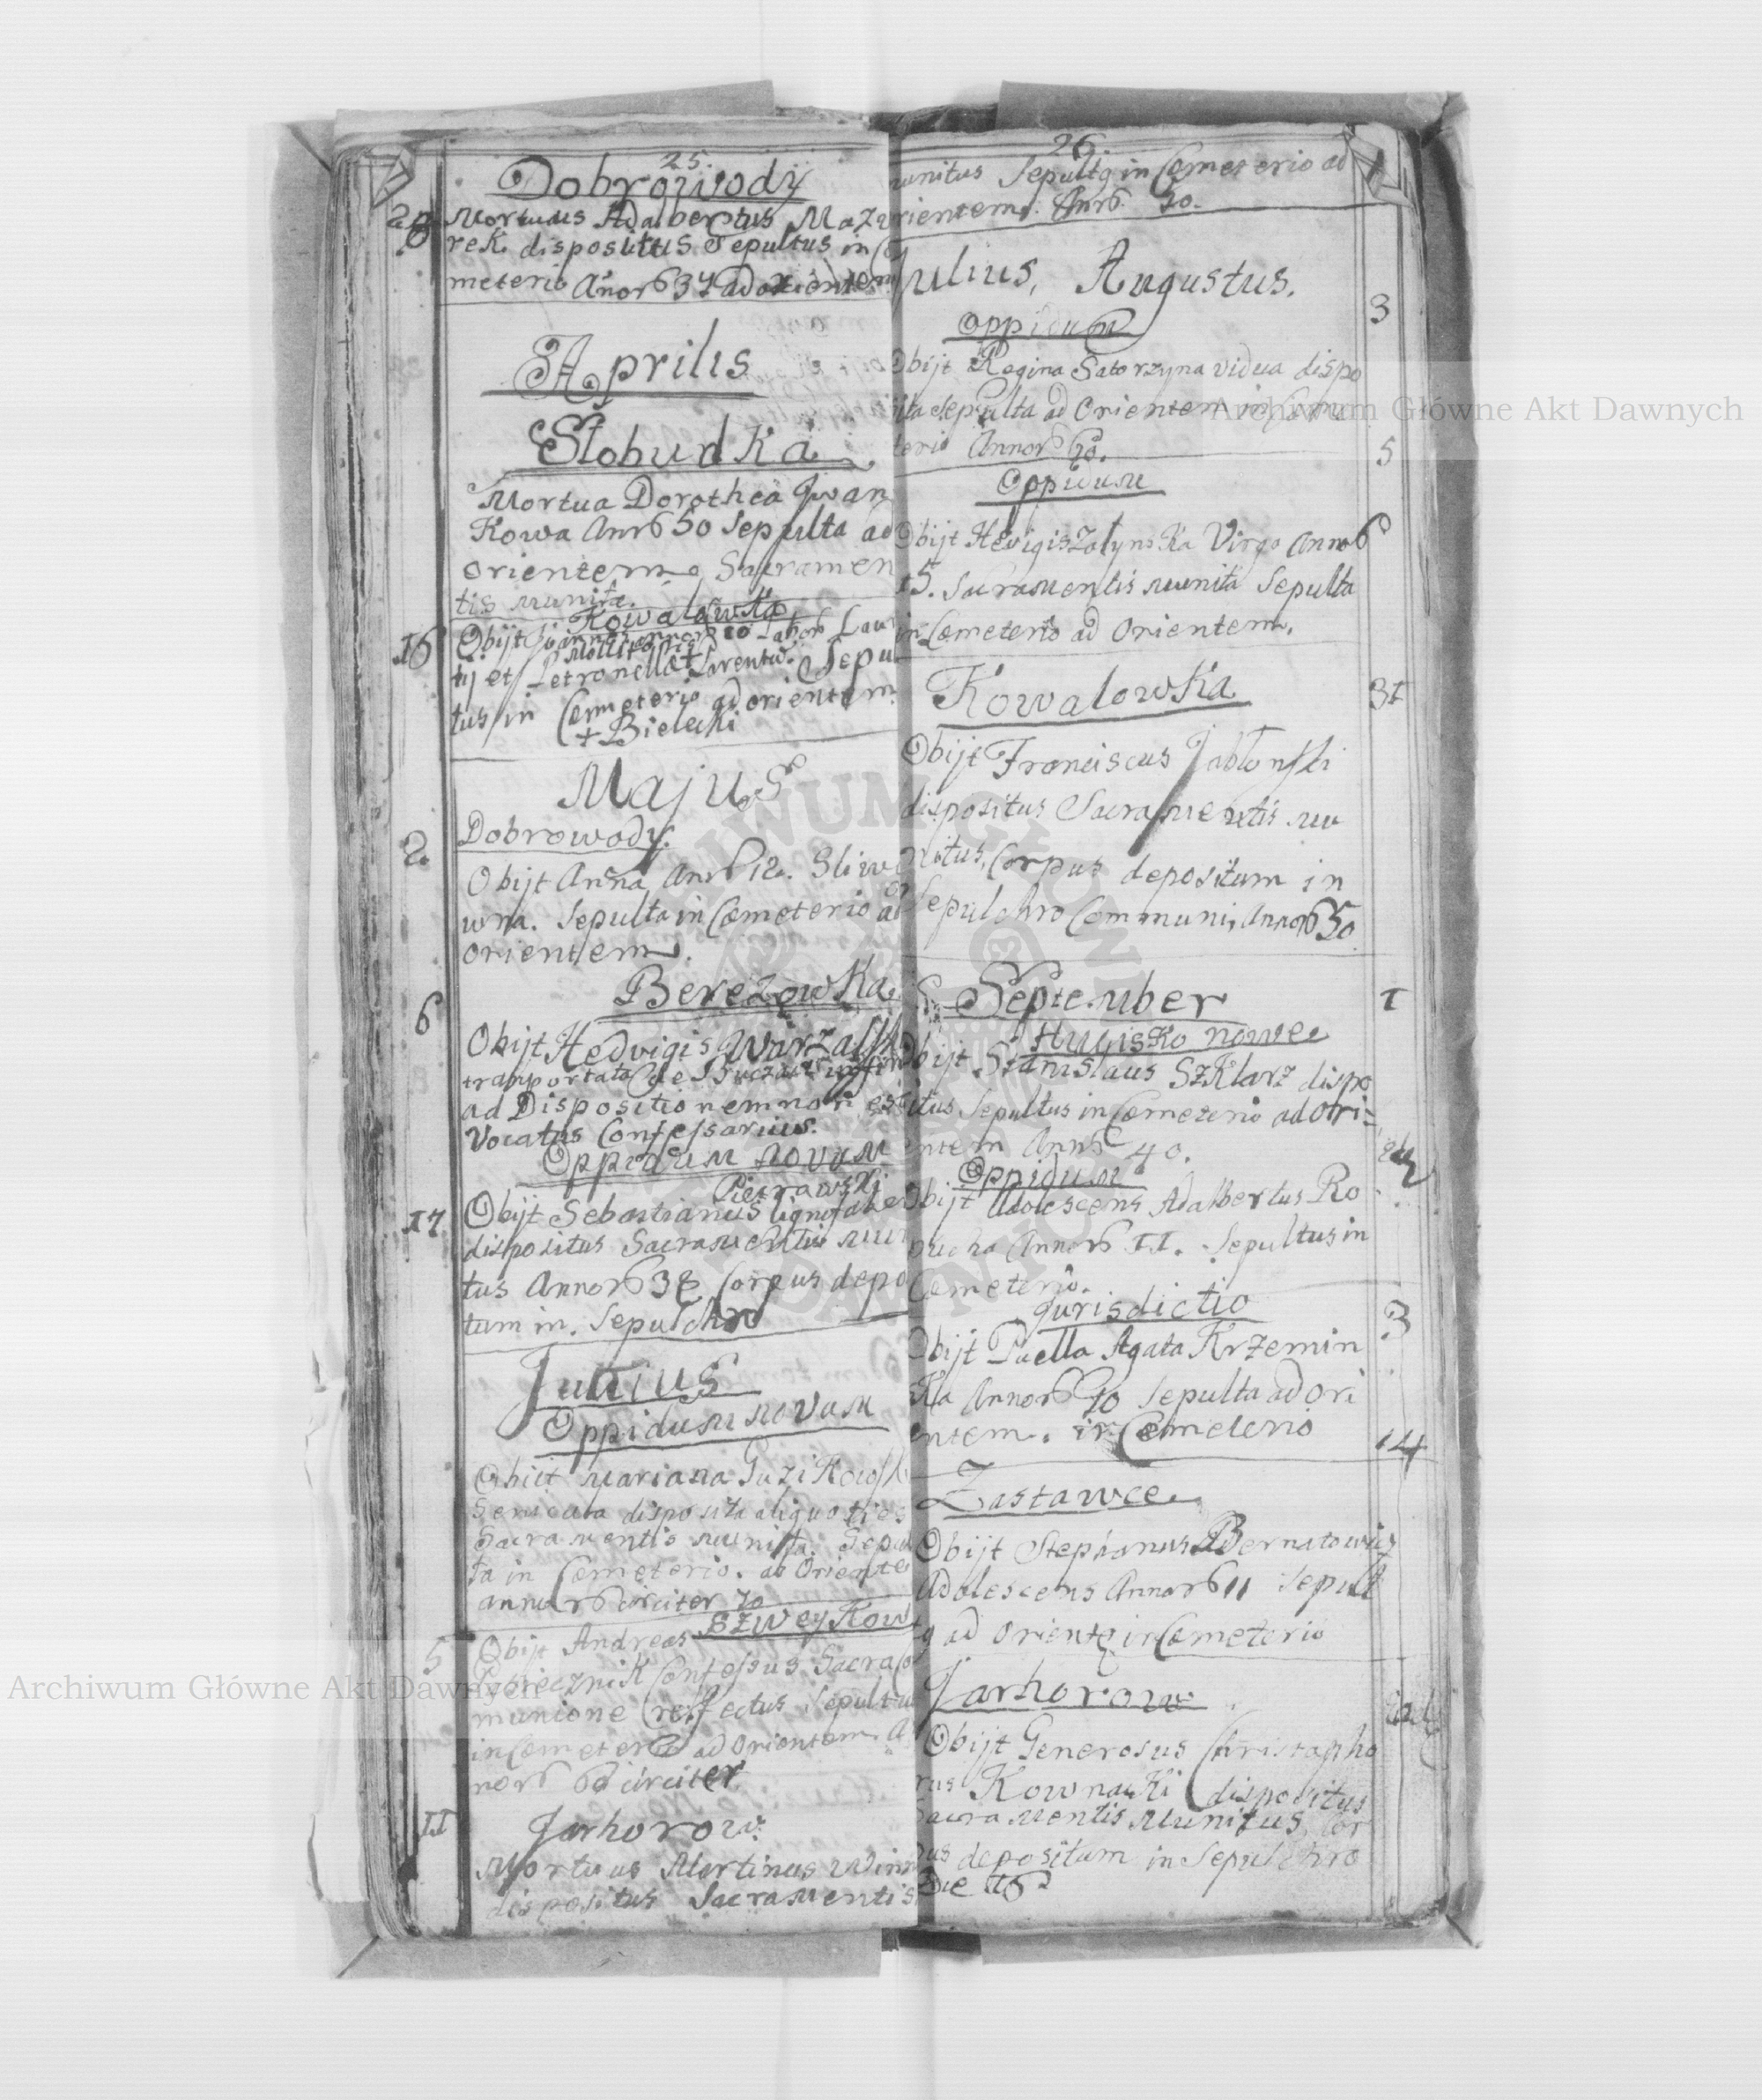 25.
Dobrowody
Mortuus Adalbertus Mazu
rek dispositus Sepultus in Cœ
meterio Anorũ 37 ad orientem
Aprilis
Słobudka
Mortua Dorothea Jwan
Kowa Anorũ 50 Sepulta ad
orientem Sacramen
tis munita.
Kowalowka
16
Obijt Joannes annorũ 10 Labor Lau
tij et Petronellæ + Parentũ. Sepul
tus in Cœmeterio ad orientem
+ Bielecki
Majus
Dobrowody.
2.
Obijt Anna Anorũ 12. Sliw
wna. Sepulta in Cœmeterio ad
orientem.
Berezowka
6
Obijt Hedvigis Warzalsk
ad Dispositionem non est
Vocatus Confessarius.
Oppidum novum
Pietrawski
17
Obijt Sebastianus lignifaber
dispositus Sacramentis muni
tus Annorũ 38 Corpus deposi
tum in Sepulchro
Junius
Oppidum novum
Obiit Mariana Guzikowsk
disposita aliquoties
Sacramentis munita. Sepul
ta in Cœmeterio. ad Oriente
annorũ circiter 70
Szweykow
5
Obijt Andreas
Confessus Sacra Co
munione refectus Sepultus
in Cœmeterio ad Orientem. An
norũ 60 circiter
11
Jarhorow
Mortuus Martinus
dispositus Sacramentis
26.
munitus Sepultq in Cœmeterio ad
orientem. Anorũ. 50.
Julius, Augustus.
3
Oppidum
Obijt Regina Satorzyna vidua dispo
sita Sepulta ad Orientem in Cœme
terio Annorũ 60.
5
Oppidum
Obijt Hedvigis Zalynska Virgo Annorũ
15. Sacramentis munita Sepulta
in Cœmeterio ad Orientem.
Kowalowka
31
Obijt Franciscus Jabłonski
dispositus Sacramentis mu
nitus, Corpus depositum in
Sepulchro Communi, Annorũ 50
September
1
Huyisko nowe
Obijt Stanislaus Szklarz dispo
situs Sepultus in Cœmeterio ad Ori=
entem Anorũ 40.
Oppidum
Obijt Adolescens Adalbertus Ro
Annorũ 11. Sepultus in
Cœmeterio.
Jurisdictio
3
Obijt Puella Agata Krzemin
ska Annorũ 10 Sepulta ad Ori
entem. in Cœmeterio
14
Zastawce
Obijt Stephanus Bernatowicz
Adolescens Annorũ 11 Sepult
q ad Orientẽ in Cœmeterio
Jarhorow
Obijt Generosus Christopho
rus Kownacki dispositus
Sacramentis Munitus, Cor
pus depositum in Sepulchro
Archiwum Główne Akt Dawnych
Archiwum Główne Akt Dawnych